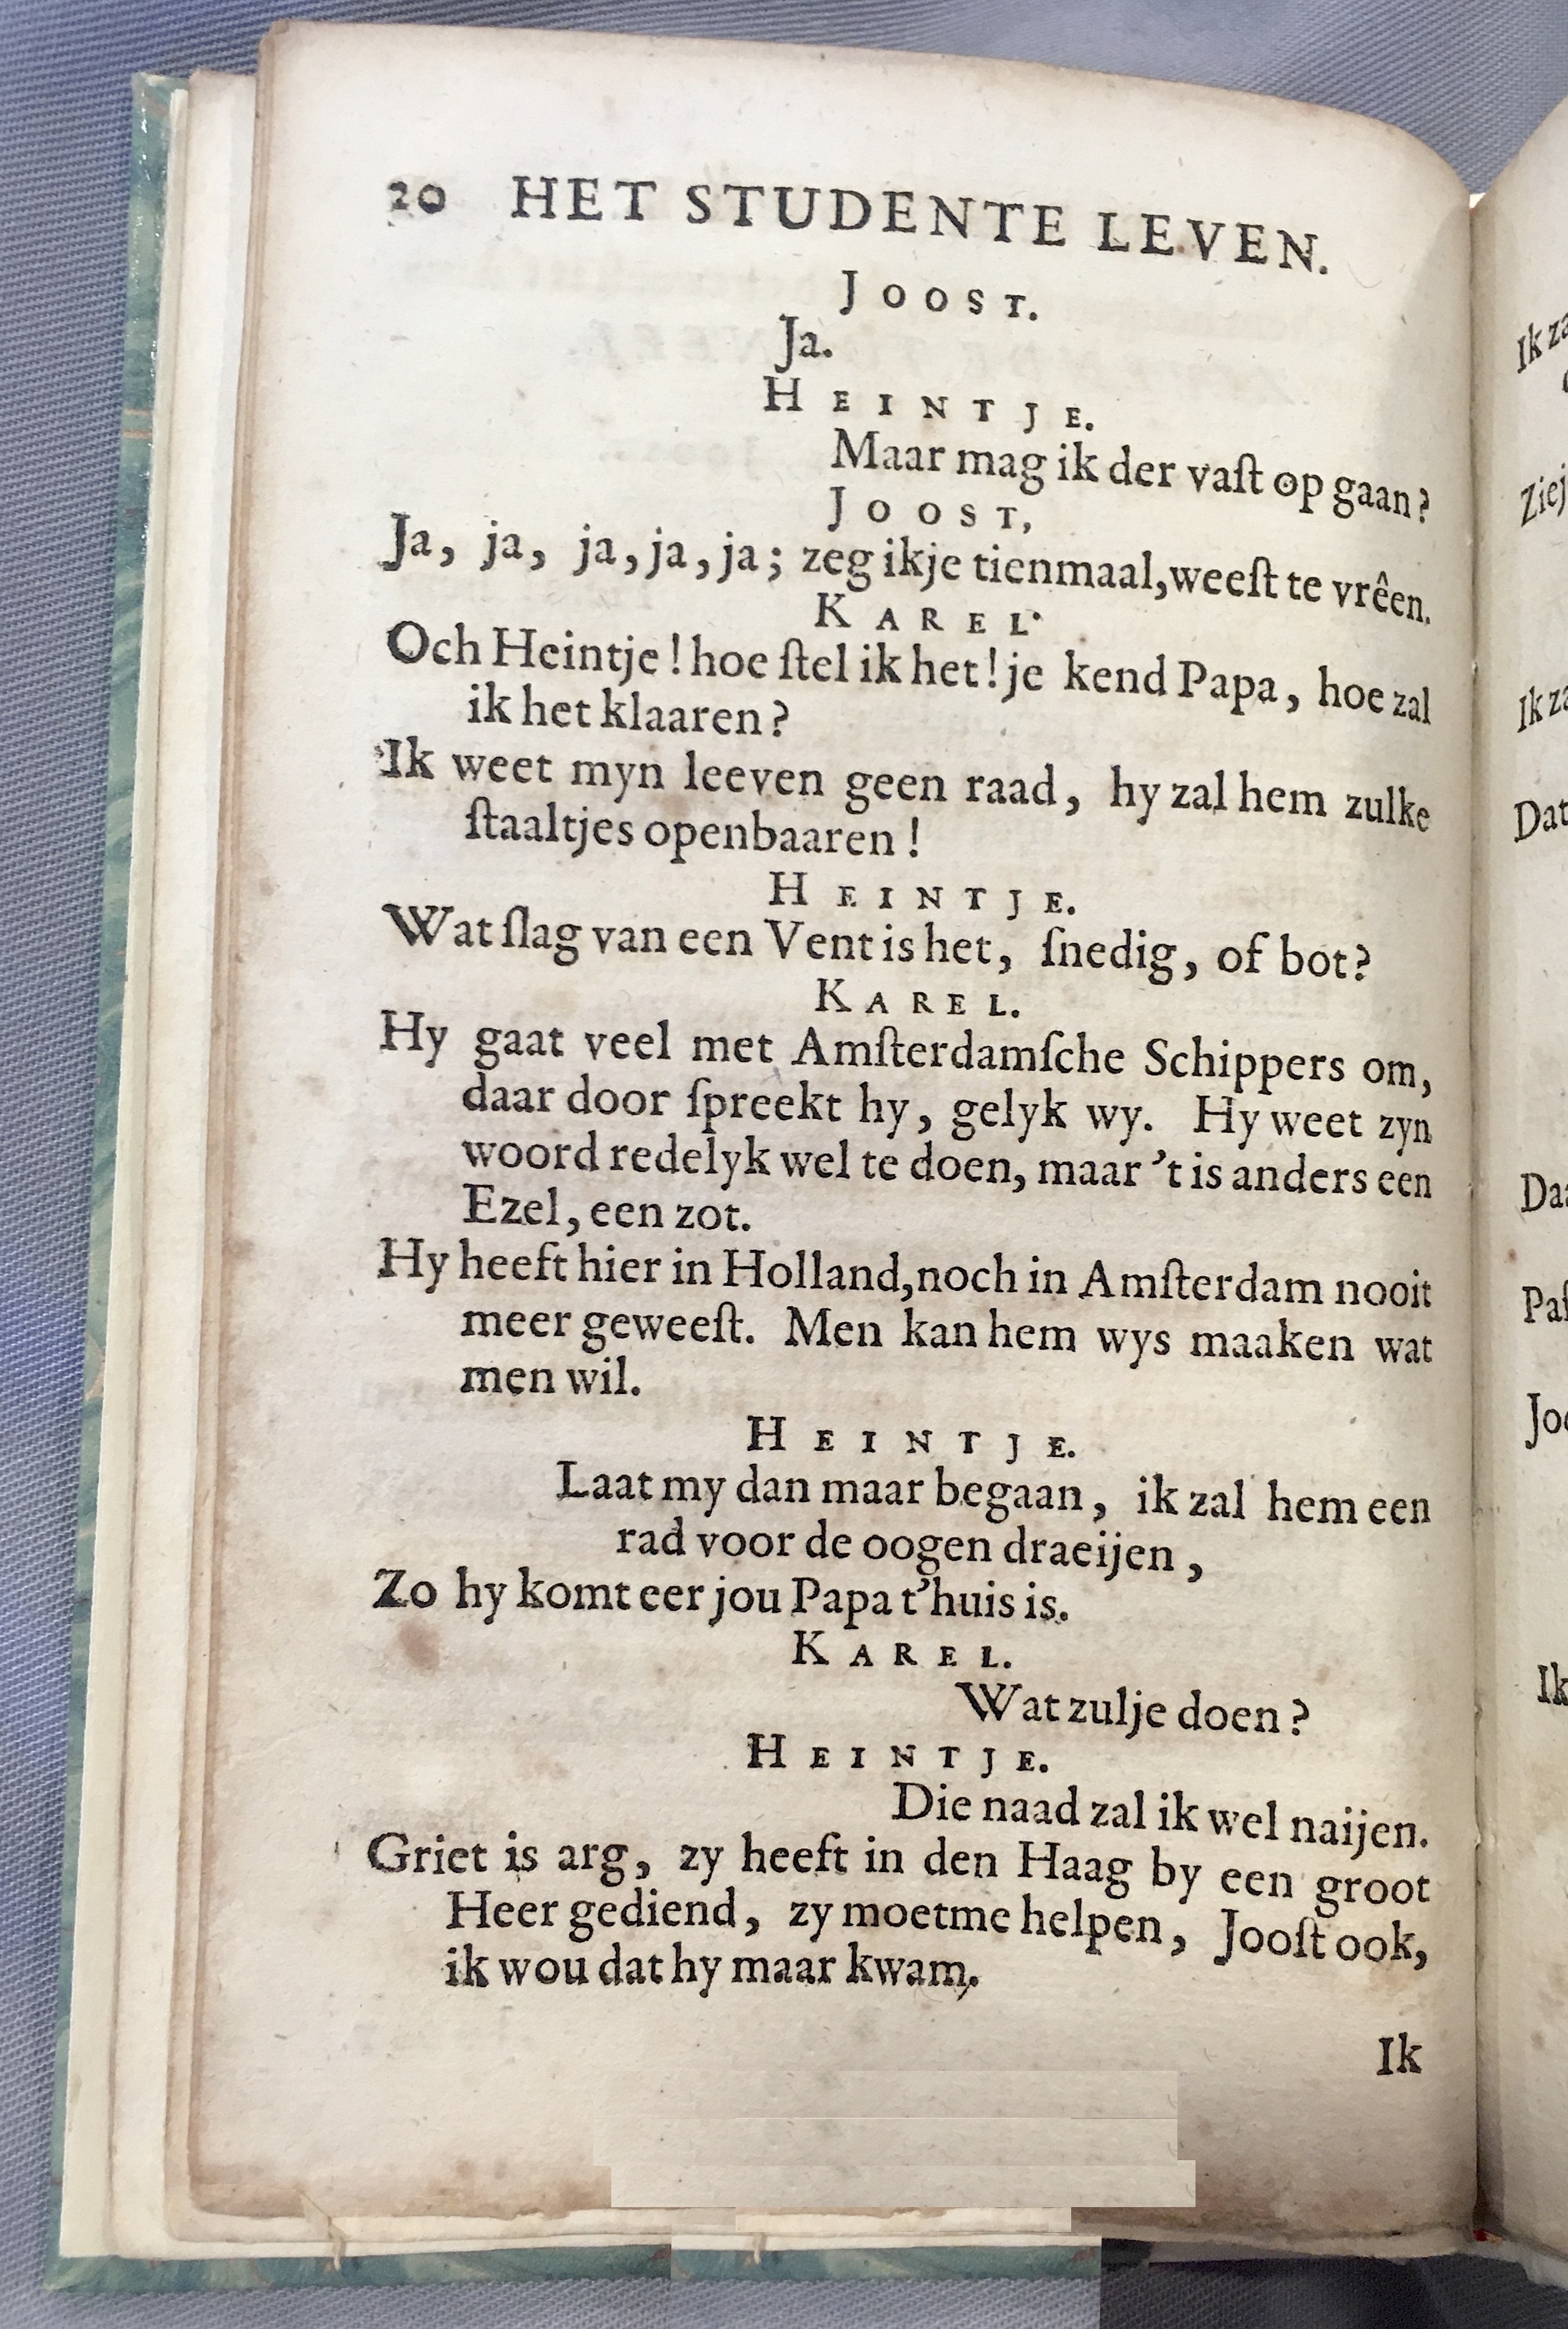 20 HET STUDENTE LEVEN.
JOOST.
Ja.
HEINTJE.
Maar mag ik der vaſt op gaan?
JOOST,
Ja, ja, ja, ja, ja; zeg ikje tienmaal, weeſt te vrêen.
KAREL.
Och Heintje! hoe ſtel ik het! je kend Papa, hoe zal
ik het klaaren?
Ik weet myn leeven geen raad, hy zal hem zulke
ſtaaltjes openbaaren!
HEINTJE.
Wat ſlag van een Vent is het, ſnedig, of bot?
KAREL.
Hy gaat veel met Amſterdamſche Schippers om,
daar door ſpreekt hy, gelyk wy. Hy weet zyn
woord redelyk wel te doen, maar 't is anders een
Ezel, een zot.
Hy heeft hier in Holland, noch in Amſterdam nooit
meer geweeſt. Men kan hem wys maaken wat
men wil.
HEINTJE.
Laat my dan maar begaan, ik zal hem een
rad voor de oogen draeijen,
Zo hy komt eer jou Papa t'huis is.
KAREL.
Wat zulje doen?
HEINTJE.
Die naad zal ik wel naijen.
Griet is arg, zy heeft in den Haag by een groot
Heer gediend, zy moetme helpen, Jooſt ook,
ik wou dat hy maar kwam.
Ik
Ik za
Ziej
Ik za
Dat
Daa
Paſ
Joo
Ik